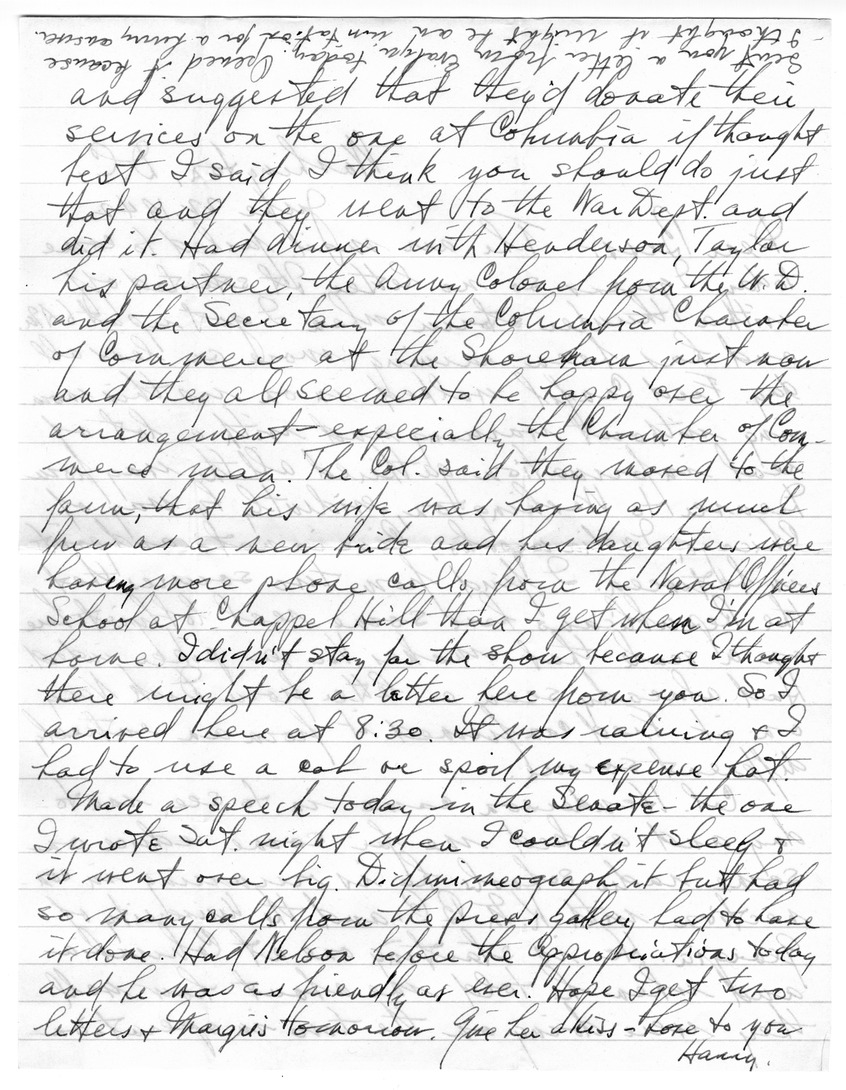 and suggested that they'd donate their
services on the one at Columbia if thought
best I said I think you should do just
that and they went to the War Dept. and
did it. Had dinner with Henderson, Taylor
his partner, the Army Colonel from the W.D.
and the Secretary of the Columbia Chamber
of Commerce at the Shoreham just now
and they all seemed to be happy over the
arrangement - especially the Chamber of Com-
merce man. The Col. said they moved to the
farm, that his wife was having as much
fun as a new bride and his daughters were
having more phone calls from the Naval Officers
School at Chappel Hill than I get when I'm at
home. I didn't stay for the show because I thought
there might be a letter here from you. So I
arrived here at 8:30. It was raining & I
had to use a cab or spoil my expense hat.
Made a speech today in the Senate - the one
I wrote Sat. night when I couldn't sleep &
it went over big. Did mimeograph it but had
so many calls from the press gallery had to have
it done. Had Nelson before the Appropriations today
and he was as friendly as ever. Hope I get two
letters & Margie's tomorrow. Give her a kiss - love to you
Harry.
Sent you a letter from today. Opened it because
I thought it might be an invitation for a hurry answer.